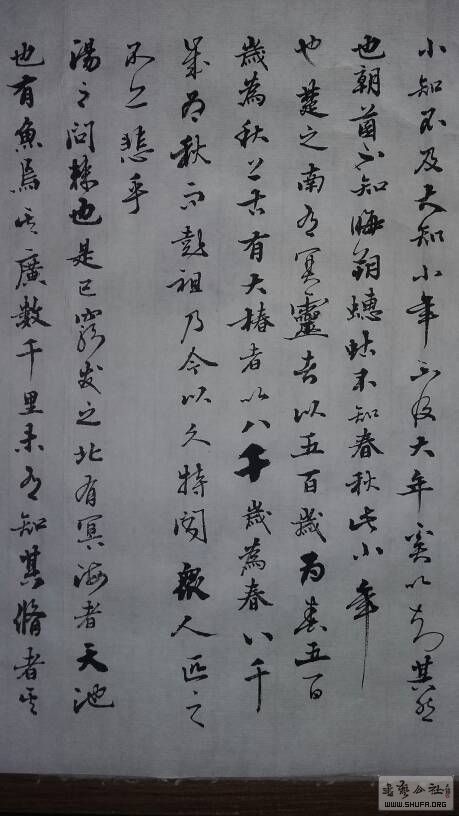 小知不及大知小年不及大年奚以知其然
也朝菌不知晦朔蟪蛄不知春秋此小年
也楚之南有冥靈者以五百歲為春五百
歲為秋上古有大椿者以八千歲為春八千
歲為秋而彭祖乃今以久特聞眾人匹之
不亦悲乎
湯之問棘也是已窮发之北有冥海者天池
也有魚焉其廣數千里未有知其脩者其
書藝公社
WWW.SHUFA.ORG